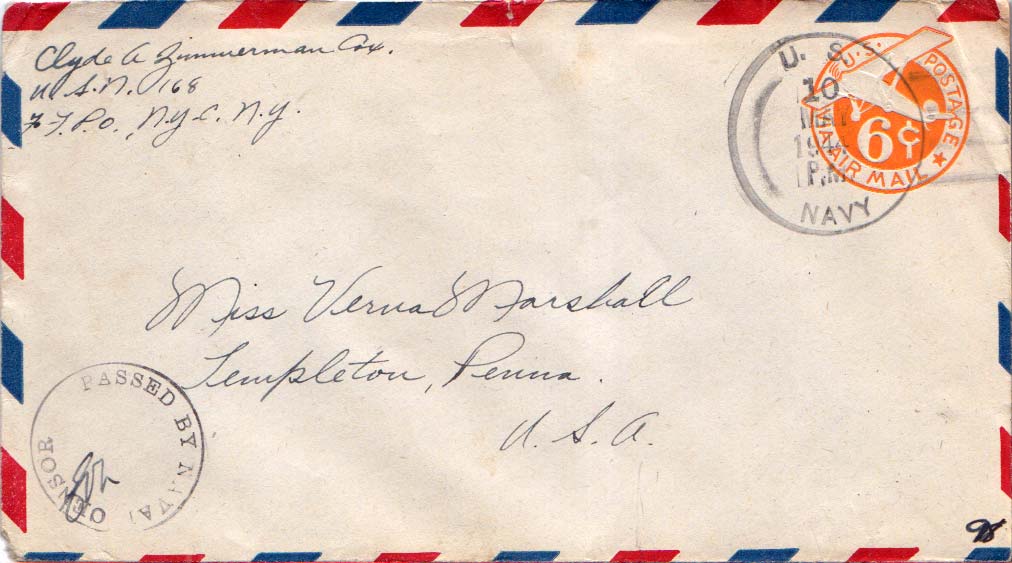 Clyde A Zimmerman Cox.
U.S.N. 168
% F.P.O. N.Y.C. N.Y.
U. S.
10
MAY
1944
1 P.M.
NAVY
U.S. POSTAGE
VIA AIR MAIL
6¢
Miss Verna Marshall
Templeton, Penna.
U. S. A.
PASSED BY NAVAL CENSOR